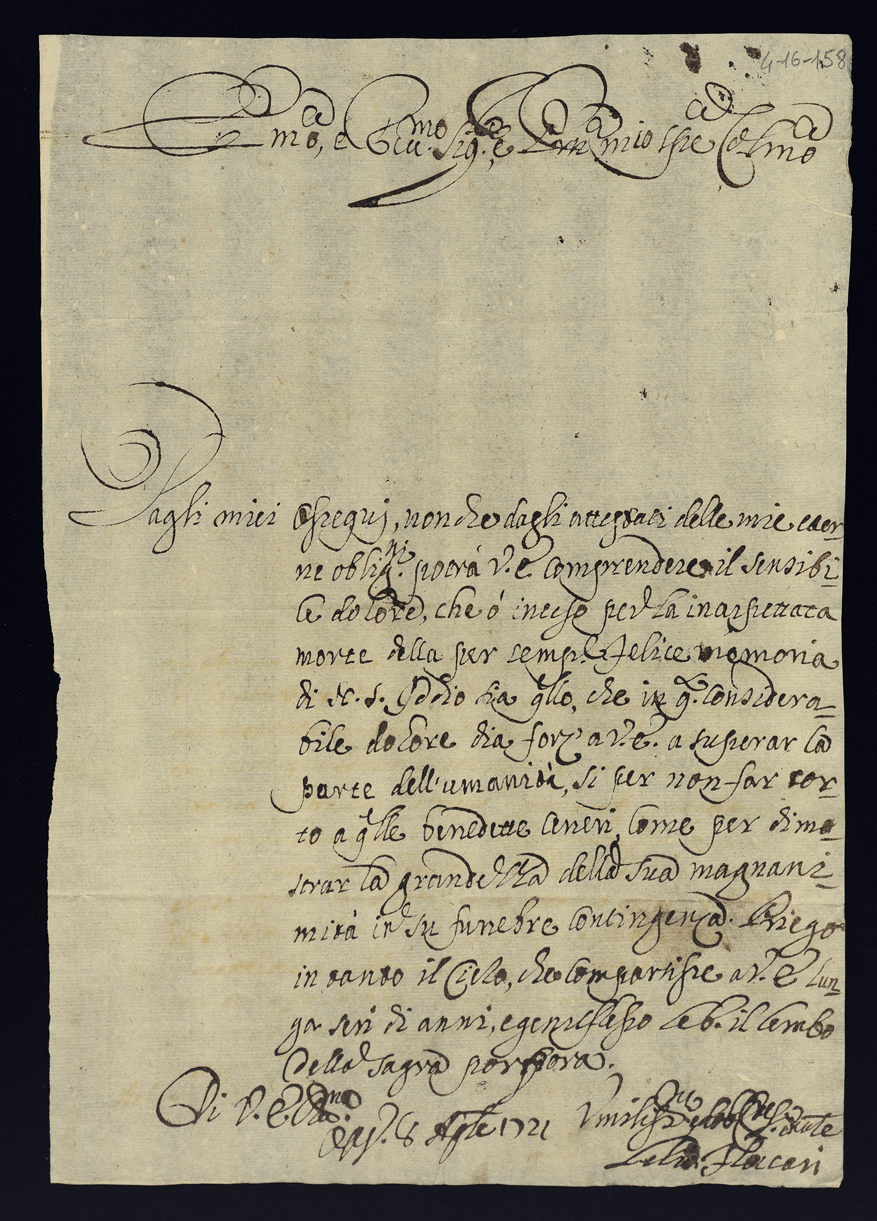 4-16-158
Em.mo, e Rev.mo Sig.re, e P.ron mio sre Col.mo
Dagli miei ossequij, non che dagli attestati delle mie eter-
ne oblig.ni potrà V. E. comprendere il sensibi-
le dolore, che ó inteso per la inaspettata
morte della per semp.e felice memoria
di N. S. Iddio sia q.llo, che in q.o considera-
bile dolore dia forz' a V. E. a superar la
parte dell'umanità, si per non far tor-
to a q.lle benedette ceneri, come per dimo-
strar la grandezza della sua magnani-
mità in su funebre contingenza. Priego
in tanto il Cielo, che compartisse a V. E. lun-
ga serj di anni, e genuflesso le b. il lembo
della sagra porpora.
Di V. E. R.ma
8 Ap.le 1721
Umiliss.mo